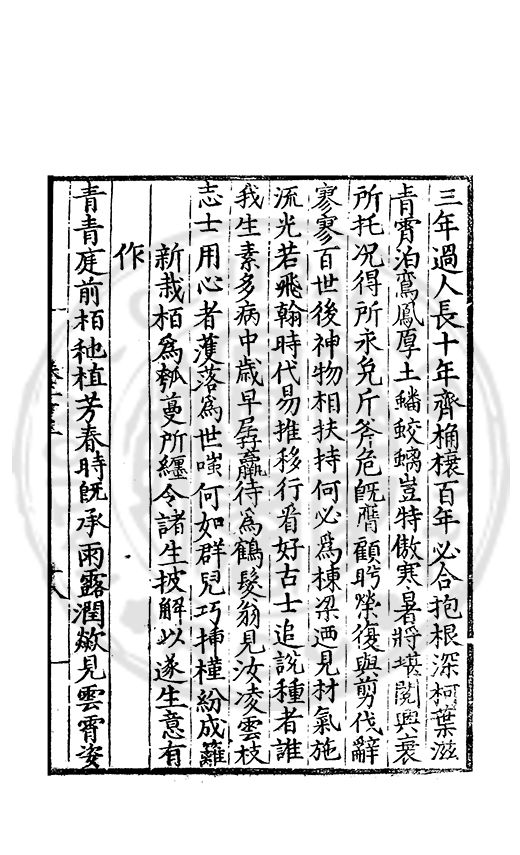 三年過人長十年齊桷榱百年必合抱根深柯葉滋
青霄泊鸞鳳厚土蟠蛟螭豈特傲寒暑將堪閱興衰
所托况得所永免斤斧危旣膺顧眄榮復與剪伐辭
寥寥百世後神物相扶持何必爲棟梁迺見材氣施
流光若飛翰時代易推移行看好古士追說種者誰
我生素多病中歲早孱羸待爲鶴髮翁見汝凌雲枝
志士用心者濩落爲世嗤何如群兒巧揷槿紛成籬
新栽栢爲瓠蔓所纒令諸生披解以遂生意有
作
青青庭前栢種植芳春時旣承雨露潤歘見雲霄姿